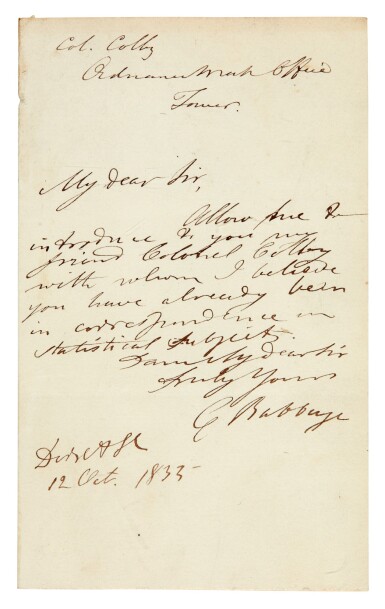 Col. Colby
Ordnance Map Office
Tower.
My dear Sir,
Allow me to
introduce to you my
friend Colonel Colby
with whom I believe
you have already been
in correspondence on
statistical subjects.
I am My dear Sir
Truly Yours
C Babbage
Dorset St
12 Oct. 1835